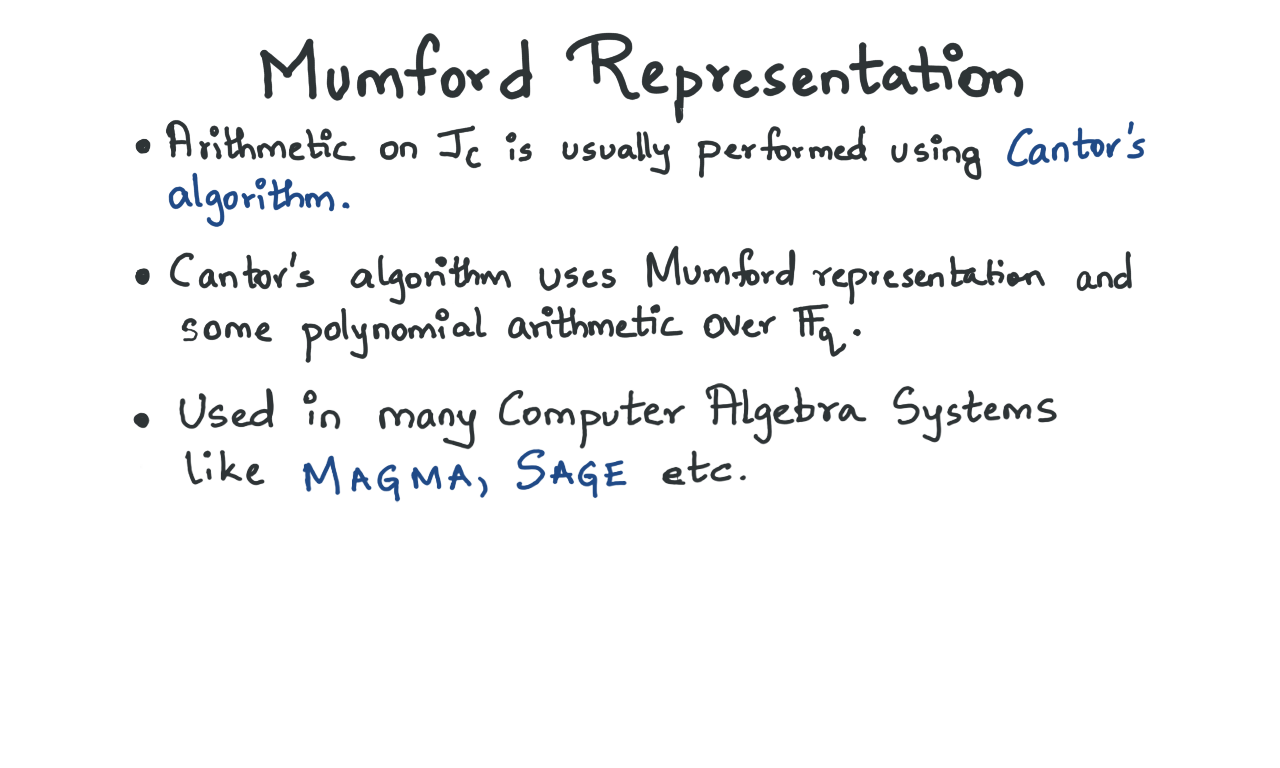 Mumford Representation
• Arithmetic on J_C is usually performed using Cantor's
algorithm.
• Cantor's algorithm uses Mumford representation and
some polynomial arithmetic over 𝔽_q.
• Used in many Computer Algebra Systems
like MAGMA, SAGE etc.